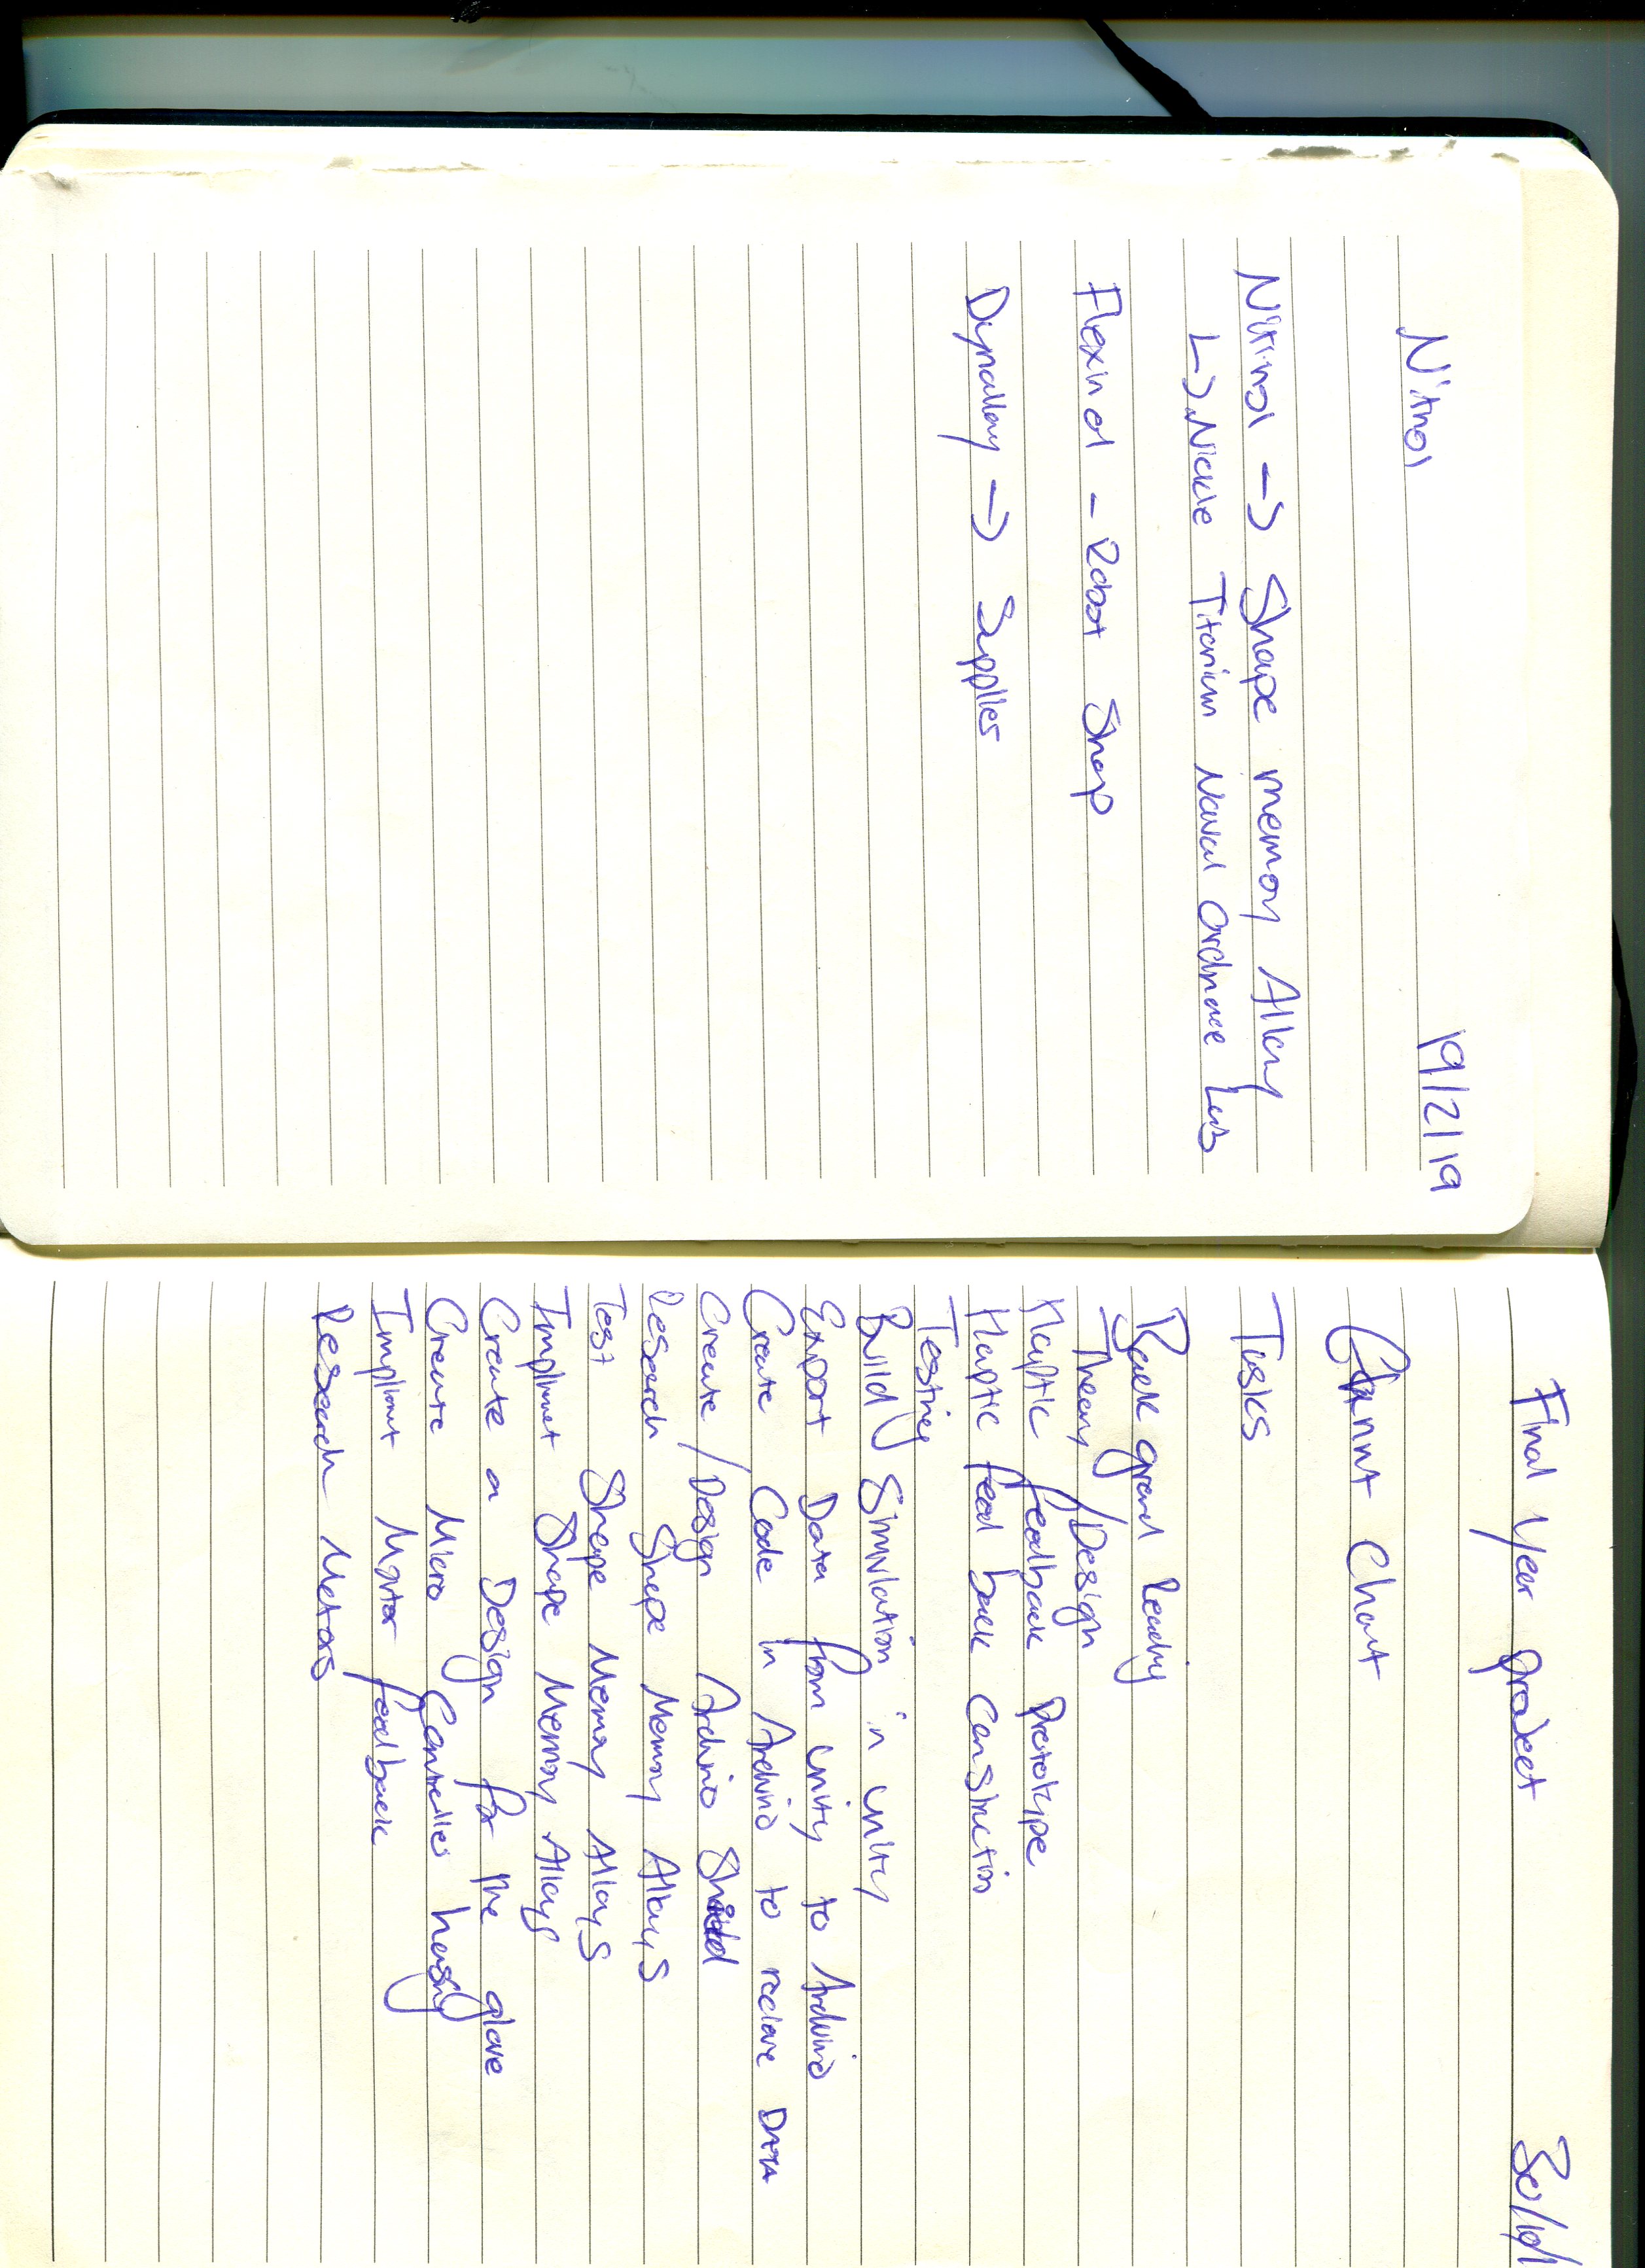 Nitnol 19/2/19
Nitinol -> Shape memory Alloy
L> Nickle Titanium Naval Ordnence Lab
Flexinol - Robot Shop
Dynalloy -> Supplies
Final Year project 30/10/
Gannt Chart
Tasks
Back ground Reading
Theory/Design
Haptic feedback Prototype
Haptic feed back Construction
Testing
Build Simulation in Unity
Export Data from Unity to Arduino
Create Code in Arduino to recieve DATA
Create/Design Arduino Shield
Research Shape Memory Alloys
Test Shape Memory Alloys
Implimet Shape Memory Alloys
Create a Design for the glove
Create Micro Controller housing
Impliment Motor feedback
Research Motors